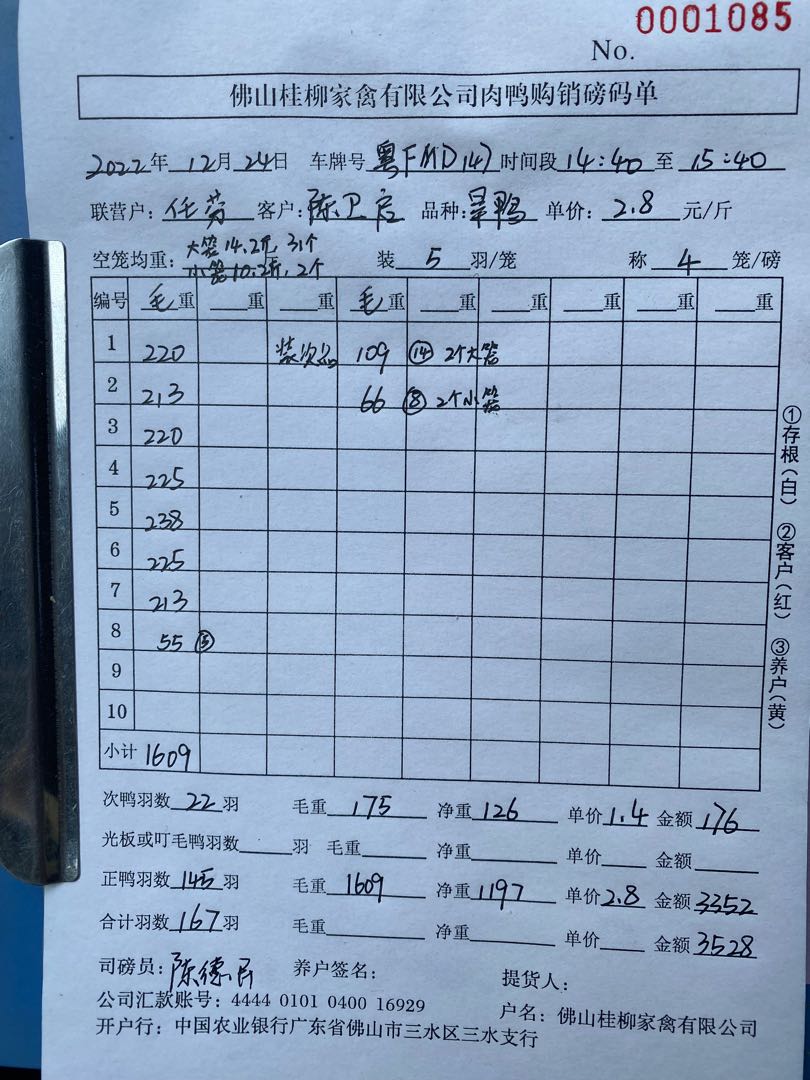 0001085
No.
佛山桂柳家禽有限公司肉鸭购销磅码单
2022年 12月 24日 车牌号 粤FMD147 时间段 14:40 至 15:40
联营户: 任劳 客户: 陈卫启 品种: 旱鸭 单价: 2.8 元/斤
空笼均重: 大笼14.2斤, 31个 小笼10.2斤, 2个 装 5 羽/笼 称 4 笼/磅
编号 毛重 重 重 毛重 重 重 重 重 重
1 220 装次品 109 ⑭ 2个大笼
2 213 66 ⑧ 2个小笼
3 220
4 225
5 238
6 225
7 213
8 55 ⑤
9
10
小计 1609
①存根(白) ②客户(红) ③养户(黄)
次鸭羽数 22 羽 毛重 175 净重 126 单价 1.4 金额 176
光板或叮毛鸭羽数 羽 毛重 净重 单价 金额
正鸭羽数 145 羽 毛重 1609 净重 1197 单价 2.8 金额 3352
合计羽数 167 羽 毛重 净重 单价 金额 3528
司磅员: 陈德民 养户签名: 提货人:
公司汇款账号: 4444 0101 0400 16929 户名: 佛山桂柳家禽有限公司
开户行: 中国农业银行广东省佛山市三水区三水支行